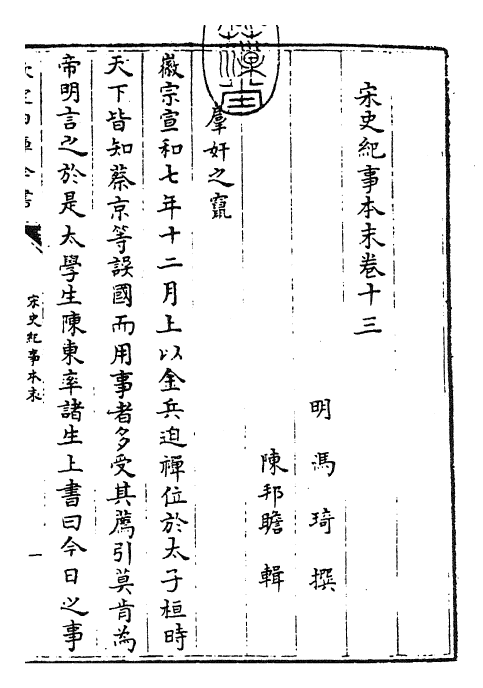 宋史紀事本末卷十三
明 馮琦 撰
陳邦瞻 輯
羣奸之竄
徽宗宣和七年十二月上以金兵迫禪位於太子桓時
天下皆知蔡京等誤國而用事者多受其薦引莫肯為
帝明言之於是太學生陳東率諸生上書曰今日之事
宋史紀事本末
一